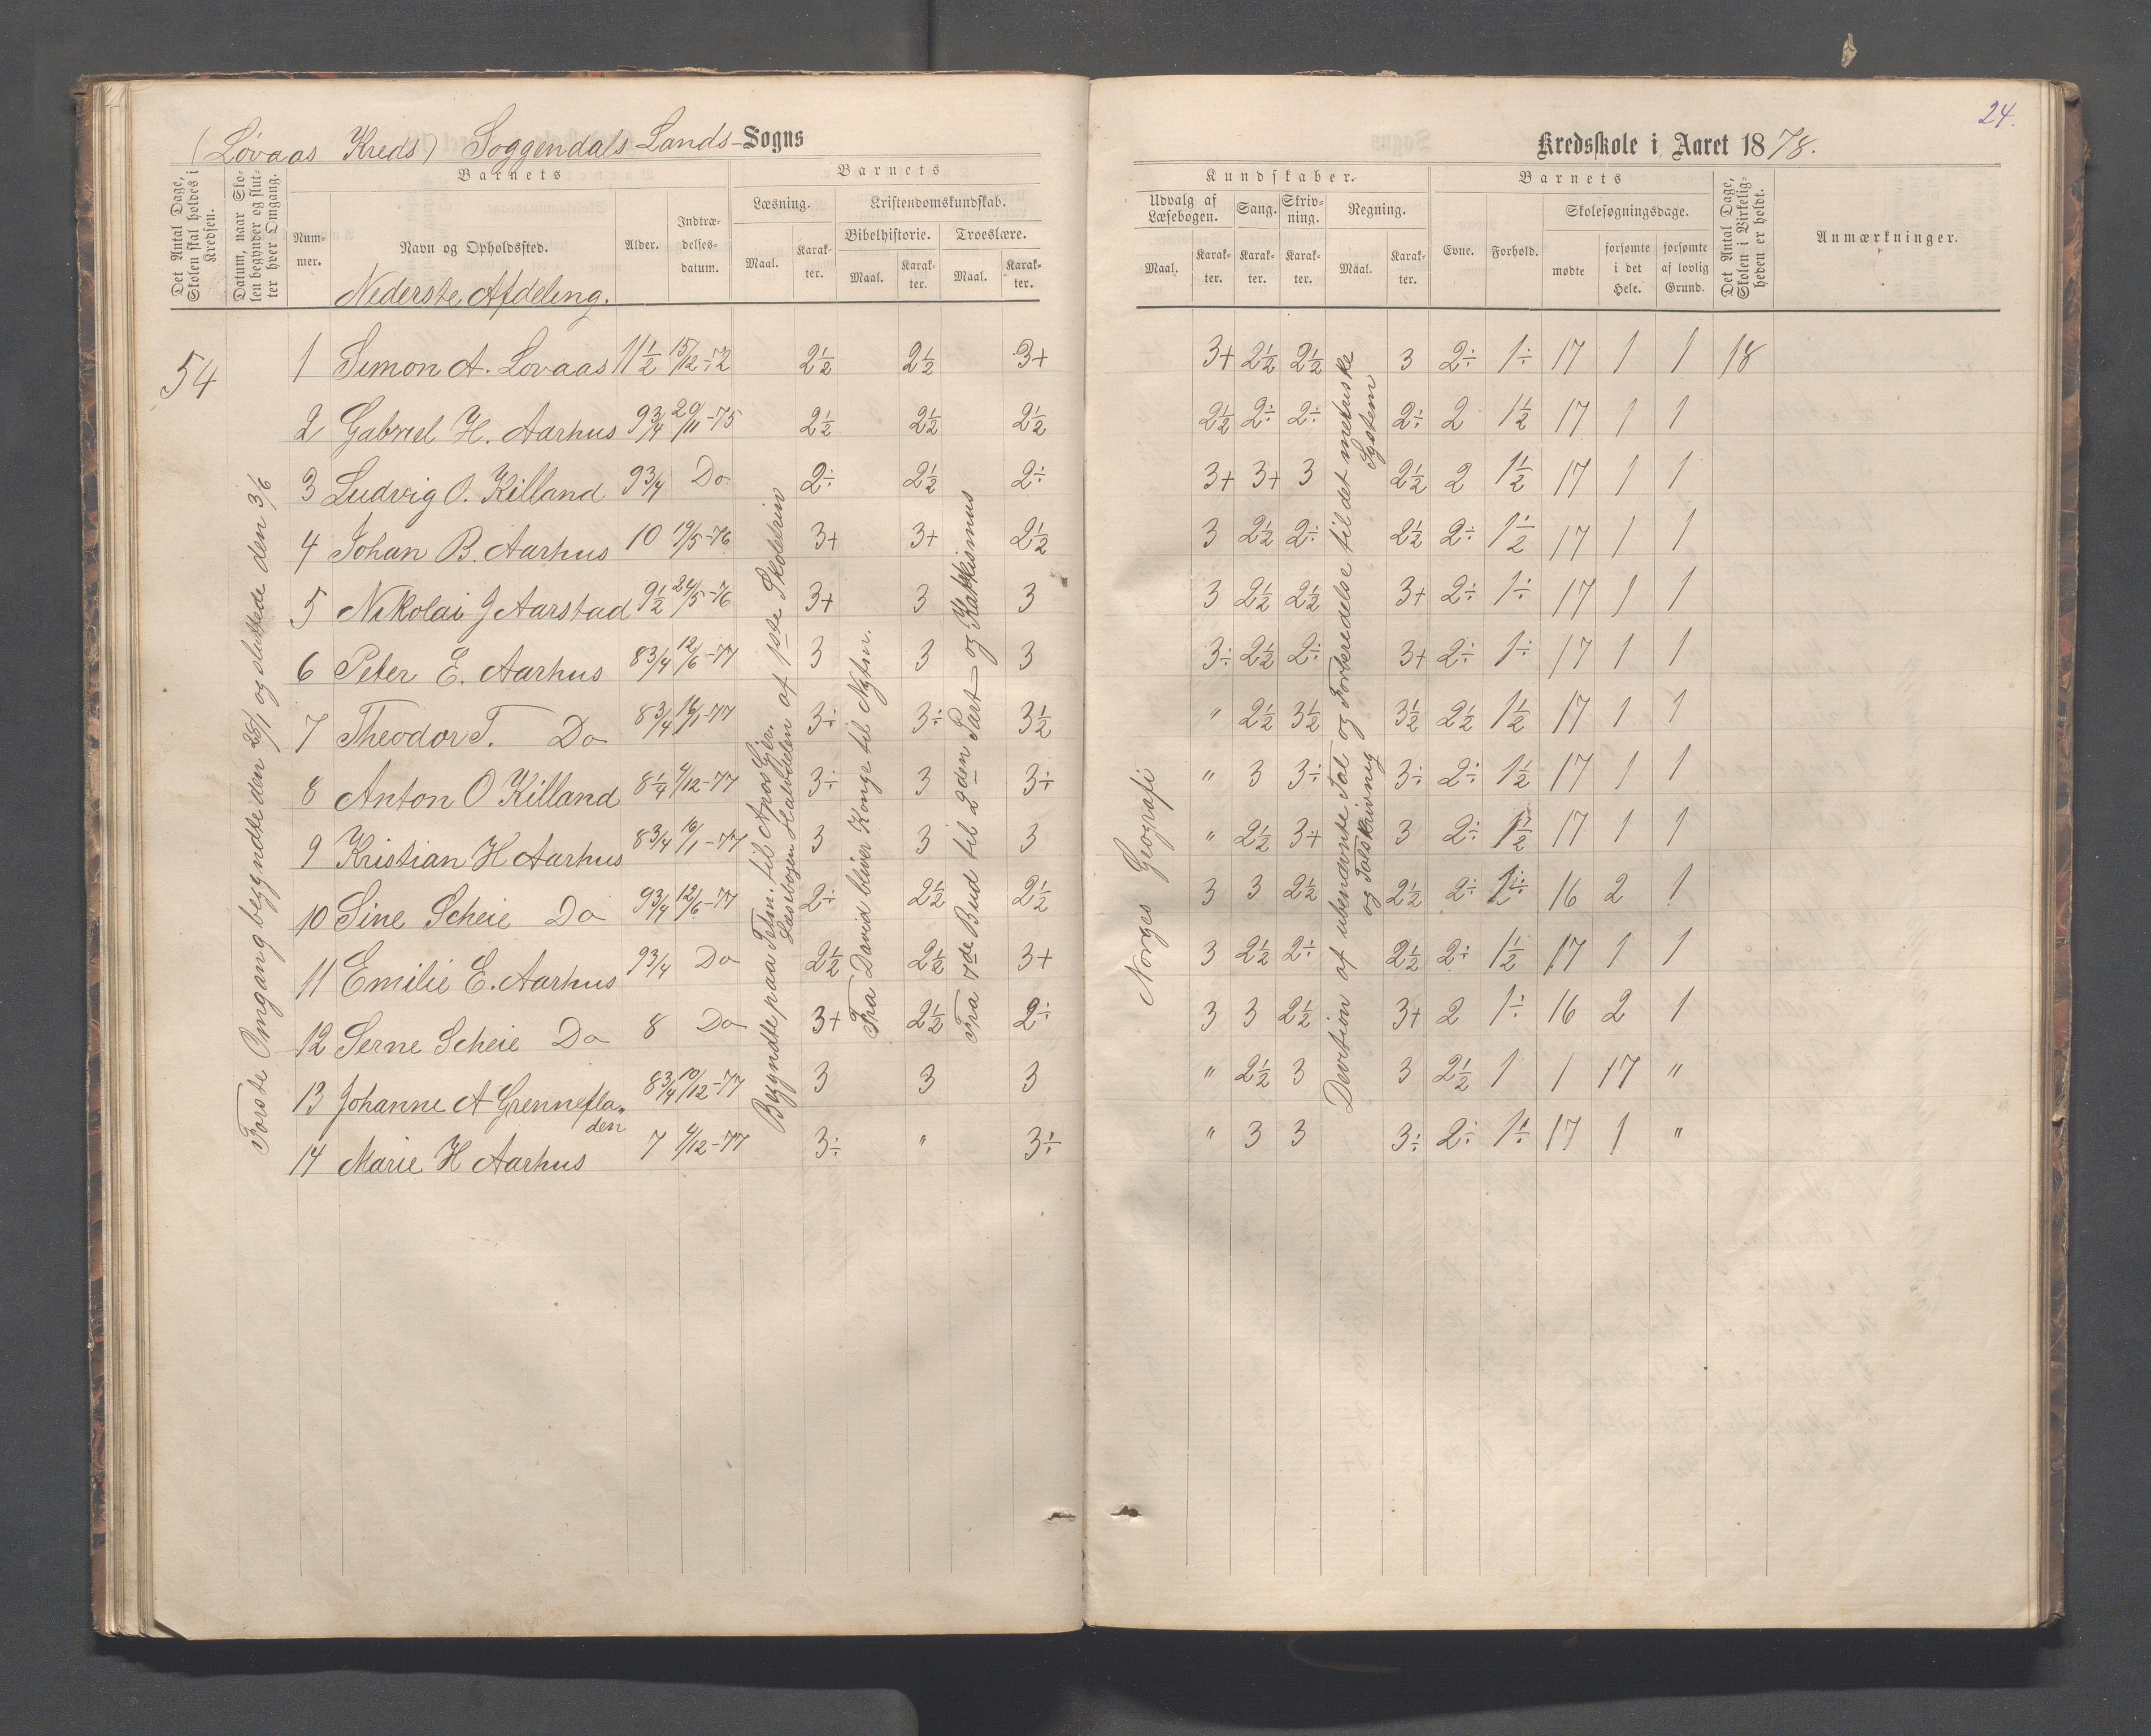 24.
(Lövaas Kreds) Soggendals Lands-Sogns
Kredsskole i Aaret 1878.
Det Antal Dage, Skolen skal holdes i Kredsen.
Datum, naar Skolen begynder og slutter hver Omgang.
Barnets
Nummer.
Navn og Opholdssted.
Alder.
Indtrædelsesdatum.
Barnets
Læsning.
Maal.
Karakter.
Kristendomskundskab.
Bibelhistorie.
Maal.
Karakter.
Troeslære.
Maal.
Karakter.
Kundskaber.
Udvalg af Læsebogen.
Maal.
Karakter.
Sang.
Karakter.
Skrivning.
Karakter.
Regning.
Maal.
Karakter.
Barnets
Evne.
Forhold.
Skolesøgningsdage.
mødte
forsømte i det Hele.
forsømte af lovlig Grund.
Det Antal Dage, Skolen i Virkeligheden er holdt.
Anmærkninger.
Nederste Afdeling.
54
1 Simon A. Lovaas 11½ 15/12-72 2½ 2½ 3+ 3+ 2½ 2½ 3 2÷ 1÷ 17 1 1 18
2 Gabriel H. Aarhus 9¾ 20/11-75 2½ 2½ 2½ 2½ 2÷ 2÷ 2÷ 2 1½ 17 1 1
3 Ludvig O. Killand 9¾ Do 2÷ 2½ 2÷ 3+ 3+ 3 2½ 2 1½ 17 1 1
4 Johan B. Aarhus 10 19/5-76 3+ 3+ 2½ 3 2½ 2÷ 2½ 2÷ 1½ 17 1 1
5 Nikolai J Aarstad 9½ 24/5-76 3+ 3 3 3 2½ 2½ 3+ 2÷ 1÷ 17 1 1
6 Peter E. Aarhus 8¾ 12/6-77 3 3 3 3÷ 2½ 2÷ 3+ 2÷ 1÷ 17 1 1
7 Theodor T. Do 8¾ 16/1-77 3÷ 3÷ 3½ " 2½ 3½ 3½ 2½ 1½ 17 1 1
8 Anton O Killand 8¼ 4/12-77 3÷ 3 3÷ " 3 3÷ 3÷ 2÷ 1½ 17 1 1
9 Kristian H Aarhus 8¾ 16/1-77 3 3 3 " 2½ 3+ 3 2÷ 1½ 17 1 1
10 Sine Scheie Do 9¾ 12/6-77 2÷ 2½ 2½ 3 3 2½ 2½ 2÷ 1÷ 16 2 1
11 Emilie E. Aarhus 9¾ Do 2½ 2½ 3+ 3 2½ 2÷ 2½ 2÷ 1½ 17 1 1
12 Serne Scheie Do 8 Do 3+ 2½ 2÷ 3 3 2½ 3+ 2 1÷ 16 2 1
13 Johanne A Grennefla„den 8¾ 10/12-77 3 3 3 " 2½ 3 3 2½ 1 1 17 "
14 Marie H Aarhus 7 4/12-77 3÷ " 3÷ " 3 3 3÷ 2÷ 1÷ 17 1 "
Første Omgang begyndte den 25/1 og sluttede den 3/6
Begyndte paa
af 1ste Skoletrin
Læsebogen Halvdelen
Fra David bliver Konge til
Fra 7de Bud til 2den Part og Katekismus
Norges Geografi
af ubenævnte Tal og Forberedelse til det metriske System
og Talskrivning